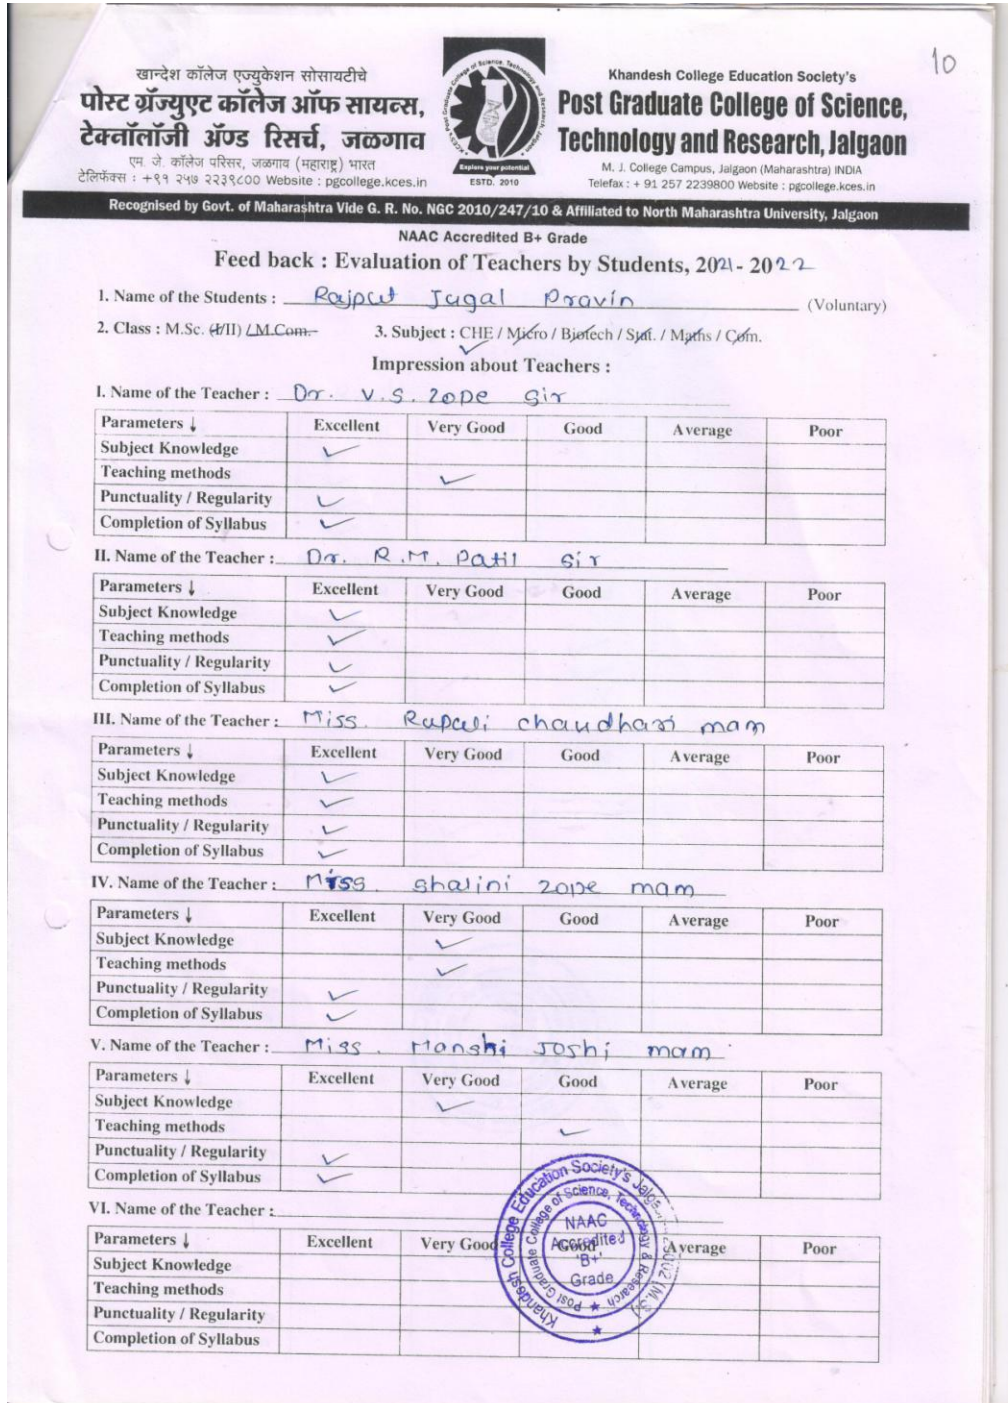 10
खान्देश कॉलेज एज्युकेशन सोसायटीचे
पोस्ट ग्रॅज्युएट कॉलेज ऑफ सायन्स,
टेक्नॉलॉजी ॲण्ड रिसर्च, जळगाव
एम. जे. कॉलेज परिसर, जळगाव (महाराष्ट्र) भारत
टेलिफॅक्स : +९१ २५७ २२३९८०० Website : pgcollege.kces.in
Explore your potential
ESTD. 2010
Khandesh College Education Society's
Post Graduate College of Science,
Technology and Research, Jalgaon
M. J. College Campus, Jalgaon (Maharashtra) INDIA
Telefax : + 91 257 2239800 Website : pgcollege.kces.in
Recognised by Govt. of Maharashtra Vide G. R. No. NGC 2010/247/10 & Affiliated to North Maharashtra University, Jalgaon
NAAC Accredited B+ Grade
Feed back : Evaluation of Teachers by Students, 2021 - 2022
1. Name of the Students : Rajput Jugal Pravin (Voluntary)
2. Class : M.Sc. (I/II) / M.Com. 3. Subject : CHE / Micro / Biotech / Stat. / Maths / Com.
Impression about Teachers :
I. Name of the Teacher : Dr. V.S. Zope Sir
Parameters ↓ Excellent Very Good Good Average Poor
Subject Knowledge ✓
Teaching methods ✓
Punctuality / Regularity ✓
Completion of Syllabus ✓
II. Name of the Teacher : Dr. R.M. Patil Sir
Parameters ↓ Excellent Very Good Good Average Poor
Subject Knowledge ✓
Teaching methods ✓
Punctuality / Regularity ✓
Completion of Syllabus ✓
III. Name of the Teacher : Miss. Rupali chaudhari mam
Parameters ↓ Excellent Very Good Good Average Poor
Subject Knowledge ✓
Teaching methods ✓
Punctuality / Regularity ✓
Completion of Syllabus ✓
IV. Name of the Teacher : Miss. Shalini zope mam
Parameters ↓ Excellent Very Good Good Average Poor
Subject Knowledge ✓
Teaching methods ✓
Punctuality / Regularity ✓
Completion of Syllabus ✓
V. Name of the Teacher : Miss. Manshi Joshi mam
Parameters ↓ Excellent Very Good Good Average Poor
Subject Knowledge ✓
Teaching methods ✓
Punctuality / Regularity ✓
Completion of Syllabus ✓
VI. Name of the Teacher :
Parameters ↓ Excellent Very Good Good Average Poor
Subject Knowledge
Teaching methods
Punctuality / Regularity
Completion of Syllabus
Khandesh College Education Society's
Post Graduate College of Science, Technology & Research
NAAC
Accredited
'B+'
Grade